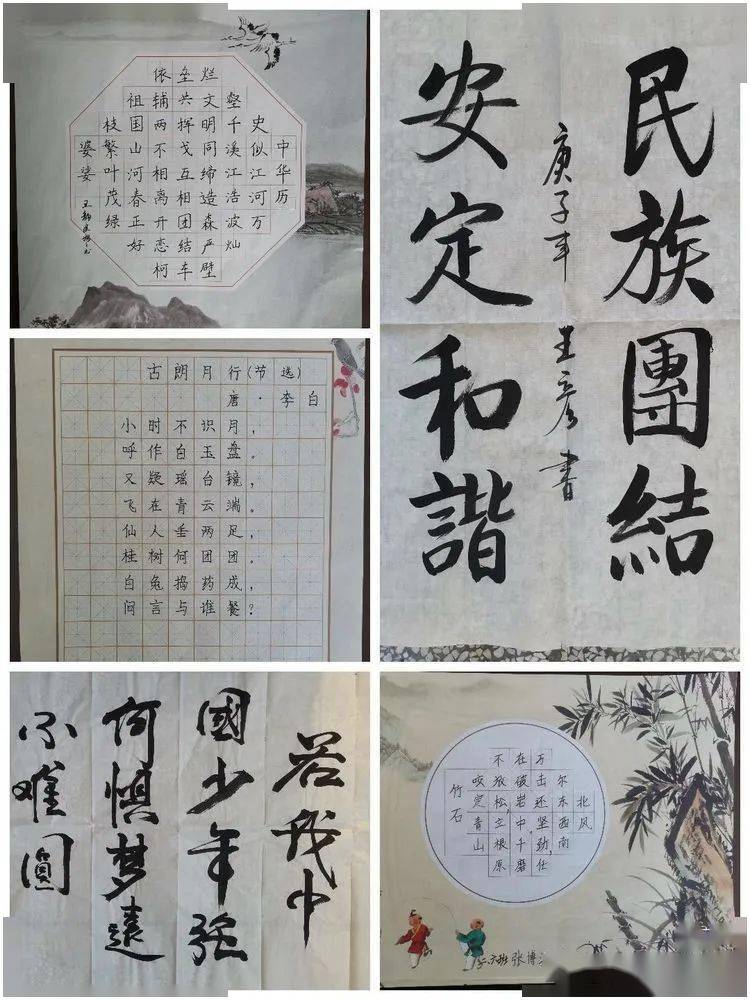 中华历
史似江河万
壑千溪江浩波灿
烂文明同缔造森严壁
垒共挥戈互相团结车
依辅两不相离开恋柯
祖国山河春正好
枝繁叶茂绿
婆娑
民族團結
安定和諧
庚子年 王彦書
古朗月行(节选)
唐·李白
小时不识月,
呼作白玉盘。
又疑瑶台镜,
飞在青云端。
仙人垂两足,
桂树何团团。
白兔捣药成,
问言与谁餐?
若我中
國少年强
何惧夢遠
不难圓
竹石
咬定青山
不放松,立根原
在破岩中,千磨
万击还坚劲,任
尔东西南
北风
六班张博